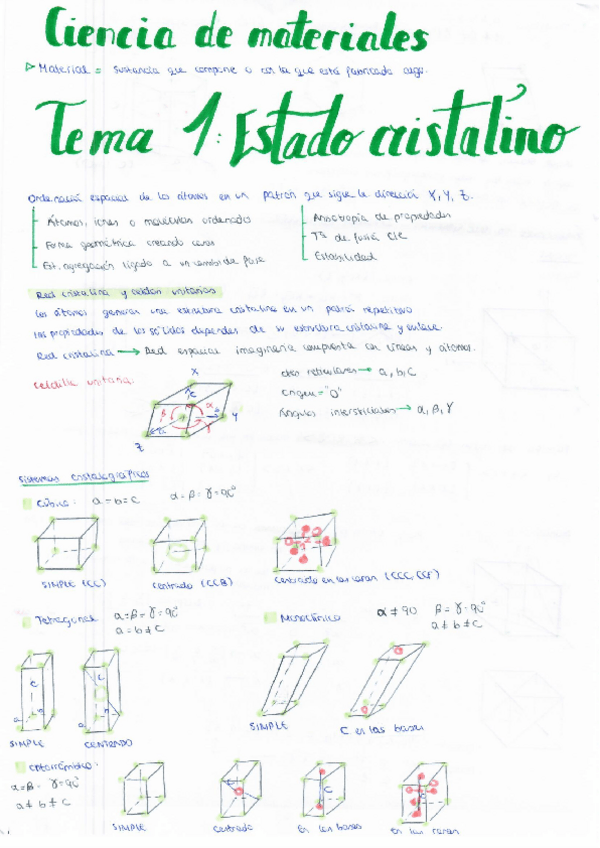 Ciencia de materiales
▷ Material = sustancia que compone o con la que está fabricado algo.
Tema 1: Estado cristalino
Ordenación espacial de los átomos en un patrón que sigue la dirección X, Y, Z.
Átomos, iones o moléculas ordenado
Forma geométrica creando caras
Est. agregación ligado a un cambio de fase
Anisotropía de propiedades
Tª de fusión cte
Estabilidad
Red cristalina y celdas unitarias
los átomos generan una estructura cristalina en un patrón repetitivo
las propiedades de los sólidos dependen de su estructura cristalina y enlace.
Red cristalina → Red espacial imaginaria compuesta con líneas y átomos.
Celdilla unitaria:
ejes reticulares → a, b, c
Origen = "0"
Ángulos intersticiales → α, β, γ
X
c
β
α
a
γ
Y
Z
Sistemas cristalográficos
Cúbico: a = b = c α = β = γ = 90°
SIMPLE (CC)
Centrado (CCB)
Centrado en las caras (CCC, CCF)
Tetragonal α = β = γ = 90°
a = b ≠ c
Monoclínico α ≠ 90 β = γ = 90°
a ≠ b ≠ c
c
c
a
a
a
SIMPLE
CENTRADO
SIMPLE
C en las bases
Ortorrómbico:
α = β = γ = 90°
a ≠ b ≠ c
c
c
SIMPLE
Centrado
En las bases
En las caras